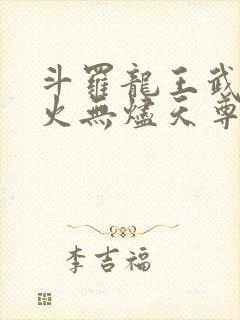 斗羅龍王武
火無燼天尊
李吉福